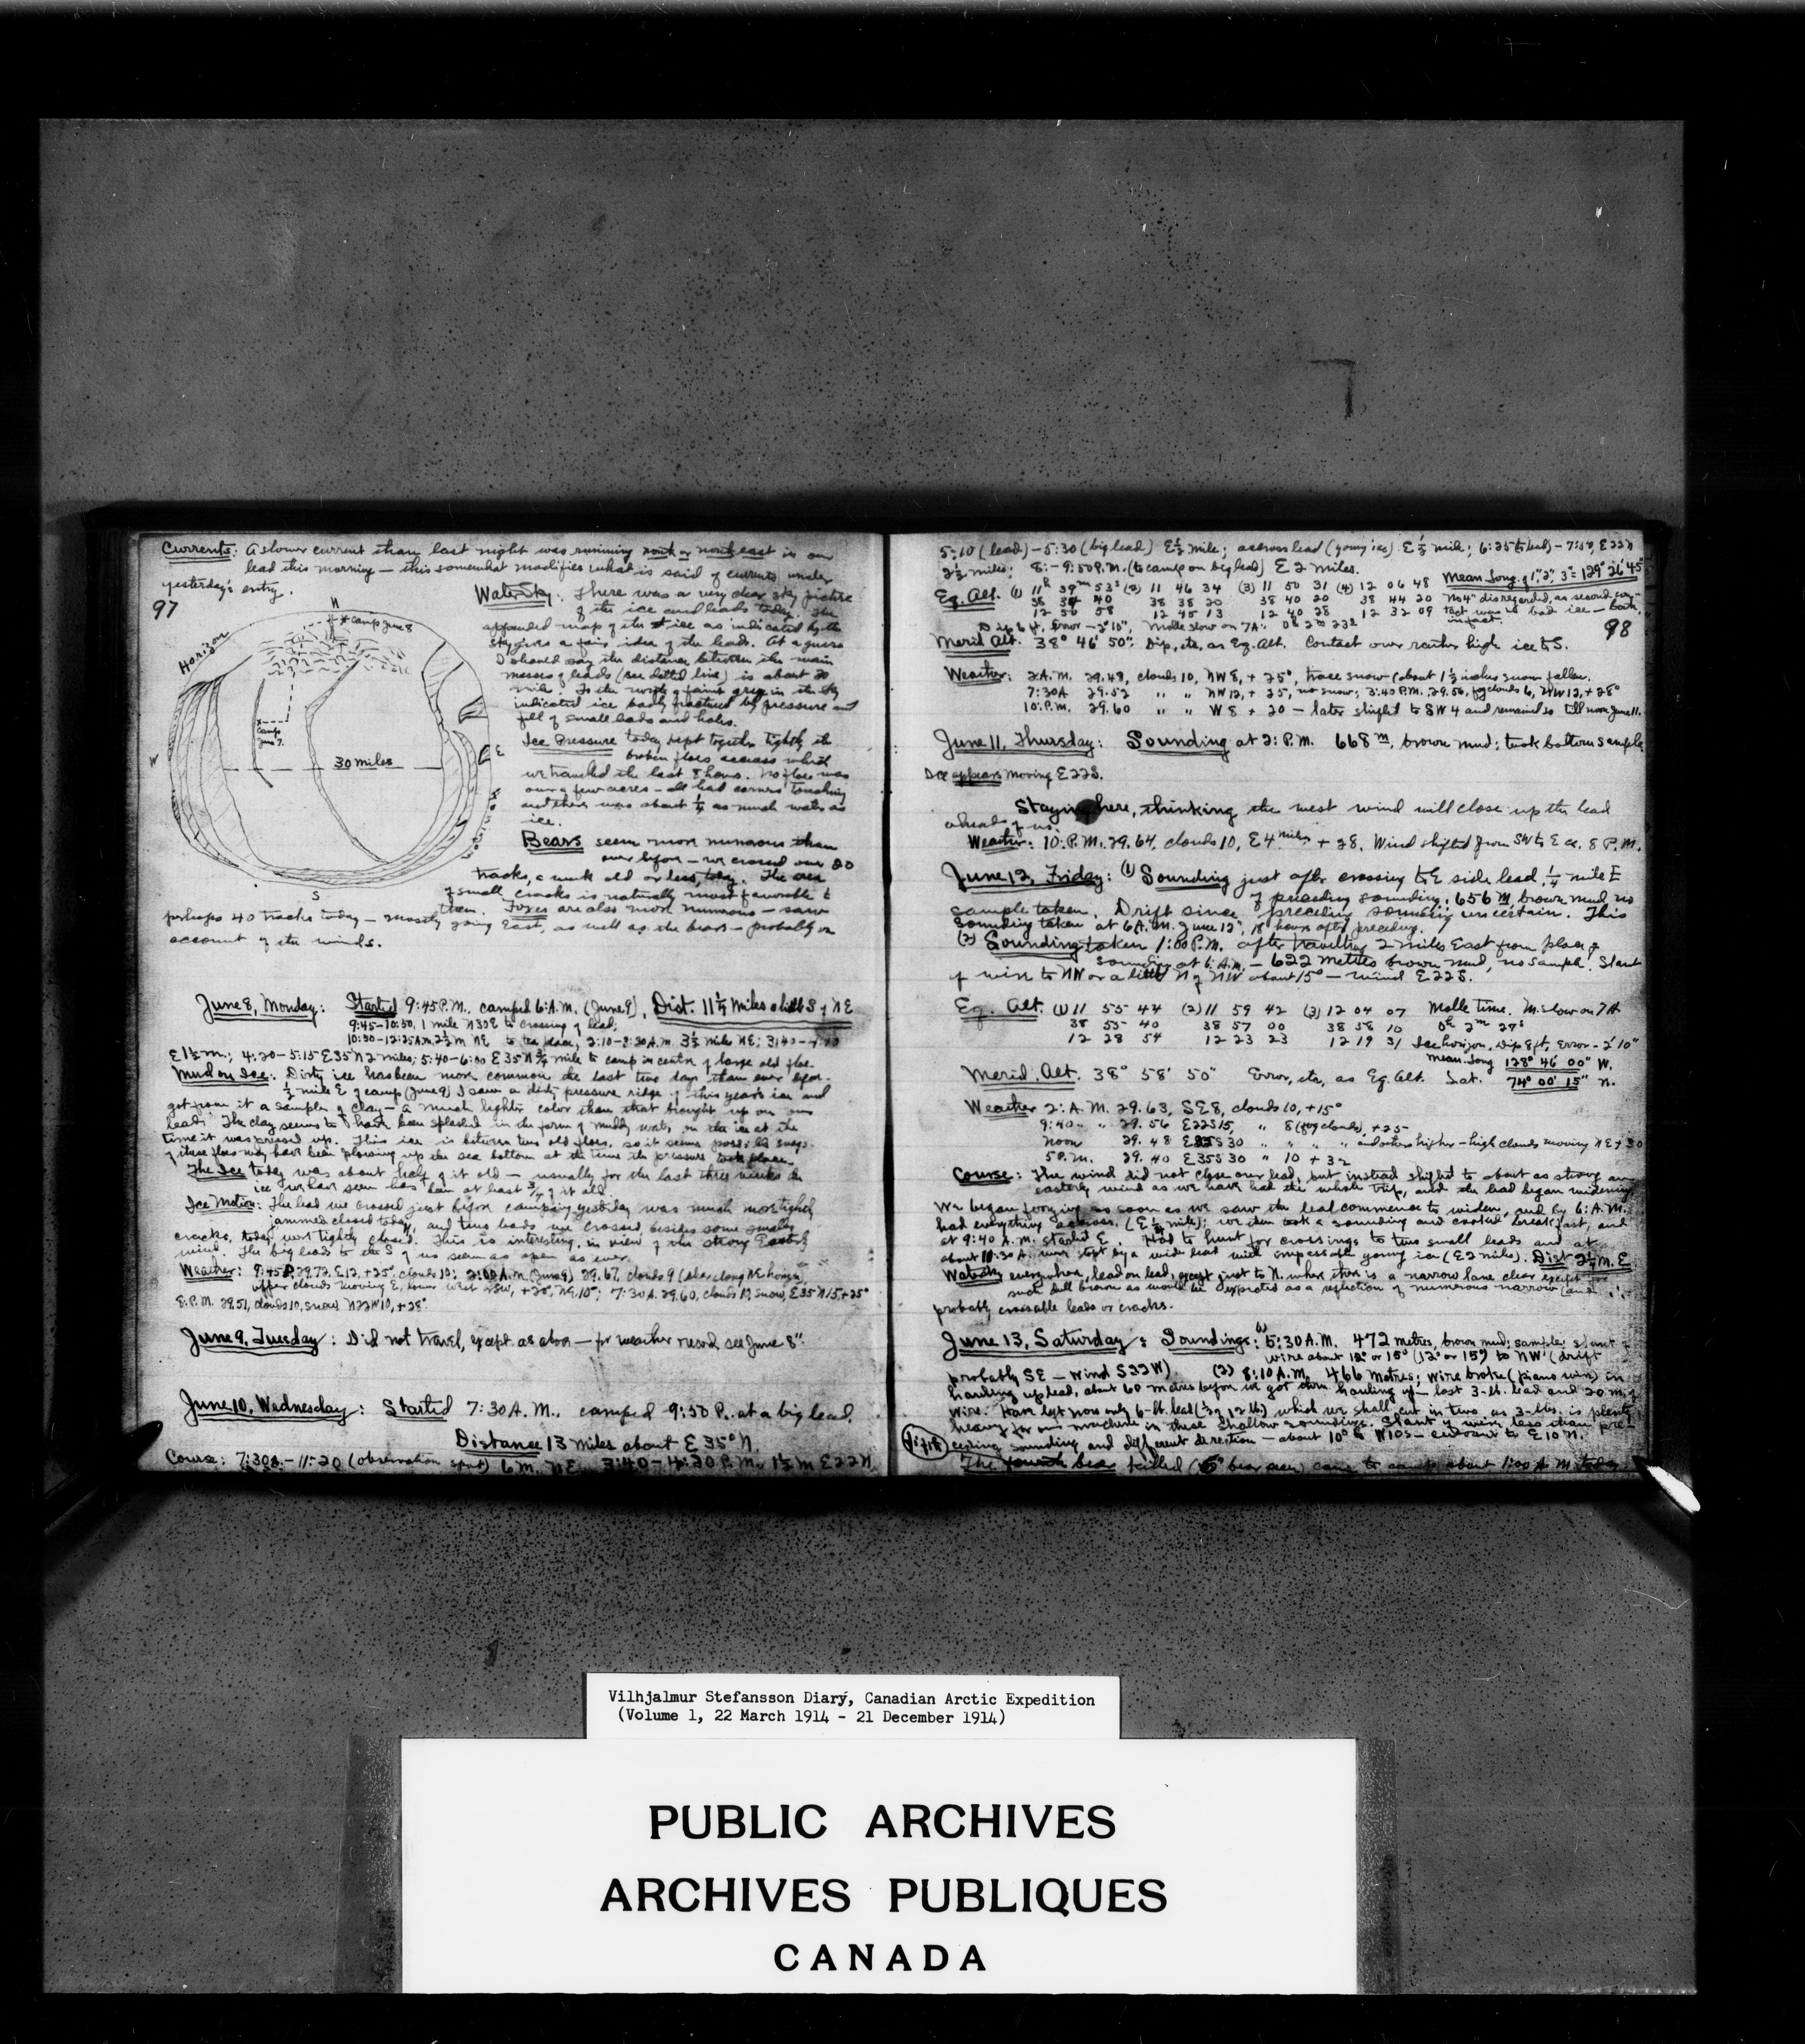 Currents: A slower current than last night was running north or northeast in our
lead this morning — this somewhat modifies what is said of currents under
yesterday's entry.
97
N
* camp June 8
Horizon
x camp June 7.
30 miles
W
E
Horizon
S
Water Sky: There was a very clear sky picture
of the ice and leads today. The
appended map of the ice as indicated by the
sky gives a fair idea of the leads. At a guess
I should say the distance between the main
masses of leads (see dotted line) is about 20
mile. To the north a faint gray in the sky
indicated ice badly fractured by pressure and
full of small leads and holes.
Ice Pressure today kept together tightly the
broken floes across which
we traveled the last 8 hours. No floe was
over a few acres — all had corners touching
and there was about 1/4 as much water as
ice.
Bears seem more numerous than
ever before — we crossed over 20
tracks, a week old or less, today. The area
of small cracks is naturally most favorable to
them. Foxes are also more numerous — saw
perhaps 40 tracks today — mostly going East, as well as the bears — probably on
account of the winds.
June 8, Monday: Started 9:45 P.M. camped 6: A.M. (June 9). Dist. 11 1/4 miles a little S of NE
9:45–10:50, 1 mile N30E to crossing of lead;
10:50–12:25 A.M. 2 1/2 m NE to tea place; 2:10–2:30 A.M. 3 1/2 miles NE; 3:40–4:20
E 1 1/2 m.; 4:20–5:15 E35N 2 miles; 5:40–6:00 E35N 3/4 mile to camp in center of large old floe.
Mud on Ice: Dirty ice has been more common the last two days than ever before.
1/2 mile E of camp (June 9) I saw a dirty pressure ridge of this year's ice and
got from it a sample of clay — a much lighter color than that brought up on our
lead. The clay seems to have been splashed in the form of muddy water on the ice at the
time it was pressed up. This ice is between two old floes, so it seems possible
of these floes may have been plowing up the sea bottom at the time the pressure took place.
The Ice today was about half of it old — usually for the last three weeks the
ice we have seen has been at least 3/4 of it old.
Ice Motion: The lead we crossed just before camping yesterday was much more tightly
jammed closed today, and two leads we crossed besides some smaller
cracks, today were tightly closed. This is interesting, in view of the strong Easterly
wind. The big leads to the S of us seem as open as ever.
Weather: 9:45 P. 29.72, E12, +25°, clouds 10; 2:00 A.M. (June 9) 29.67, clouds 9 (clear along NE horizon,
upper clouds moving E, lower West WSW, +20°, NE 10"; 7:30 A. 29.60, clouds 10, snow, E35N15, +25°
8: P.M. 29.51, clouds 10, snow, N22W10, +28°.
June 9, Tuesday: Did not travel, except as above — for weather record see June 8"
June 10, Wednesday: Started 7:30 A.M., camped 9:50 P. at a big lead.
Distance 13 miles about E 35° N.
Course: 7:30 A. – 11:20 (observation spot) 6 m. NE. 3:40–4:30 P.M. 1 1/2 m E22N.
5:10 (lead) – 5:30 (big lead) E 1/2 mile; across lead (young ice) E 1/2 mile; 6:25 – 7:50, E22N
2 1/2 miles; 8: – 9:50 P.M. (to camp on big lead) E 2 miles.
Mean Long. of 1", 2", 3" = 129° 26' 45"
Eq. Alt. (1) 11h 39m 53s (2) 11 46 34 (3) 11 50 31 (4) 12 06 48 No 4" disregarded, as second con-
38 34 40 38 38 20 38 40 20 38 44 20 tact was in bad ice — both,
12 50 58 12 45 13 12 40 28 12 32 09 in fact.
Dip 6 ft, Error – 2' 10", Molle slow on 7A: 0h 2m 23s
98
Merid Alt. 38° 46' 50". Dip, etc, as Eq. Alt. Contact over rather high ice to S.
Weather: 2 A.M. 29.48, clouds 10, NW 8, +25°, trace snow (about 1 1/2 inches snow fallen.
7:30 A 29.52 " " NW 12, +25, no snow; 3:40 P.M. 29.56, fog clouds 6, NW 12, +28°
10: P.M. 29.60 " " W 8 +20 — later shifted to SW 4 and remained so till noon June 11.
June 11, Thursday: Sounding at 2: P.M. 668 m, brown mud; took bottom sample
Ice appears moving E22S.
Staying here, thinking the west wind will close up the lead
ahead of us.
Weather: 10: P.M. 29.64, clouds 10, E 4 miles, +28. Wind shifted from SW to E ca. 8 P.M.
June 12, Friday: (1) Sounding just after crossing to E side lead, 1/4 mile E
of preceding sounding: 656 m brown mud no
sample taken. Drift since preceding sounding uncertain. This
sounding taken at 6 A.M. June 12", 18 hours after preceding.
(2) Sounding taken 1:00 P.M. after travelling 2 miles East from place of
sounding at 6: A.M. — 622 metres brown mud, no sample. Slant
of wire to NW or a little N of NW about 15° — wind E22S.
Eq. Alt. (1) 11 55 44 (2) 11 59 42 (3) 12 04 07 Molle time. M. slow on 7A
38 55 40 38 57 00 38 58 10 0h 2m 27s
12 28 54 12 23 23 12 19 31 Ice horizon, Dip 8 ft, Error – 2' 10"
Mean Long 128° 46' 00" W.
Merid. Alt. 38° 58' 50" Error, etc, as Eq. Alt. Lat. 74° 00' 15" N.
Weather 2: A.M. 29.63, SE 8, clouds 10, +15°
9:40 " 29.56 E22S15 " 8 (fog clouds) +25
Noon 29.48 E35S30 " " " " and others higher — high clouds moving NE +30
5 P.M. 29.40 E35S30 " 10 +32
Course: The wind did not close our lead, but instead shifted to about as strong an
easterly wind as we have had the whole trip, and the lead began widening
We began ferrying as soon as we saw the lead commence to widen, and by 6: A.M.
had everything across. (E 1/2 mile); we then took a sounding and cooked breakfast, and
at 9:40 A.M. started E. Had to hunt for crossings to two small leads and at
about 10:30 A. were stopt by a wide lead with impassable young ice (E 2 miles). Dist 2 1/2 m. E
Watersky everywhere, lead on lead, except just to N. where there is a narrow lane clear except for
such dull brown as would be expected as a reflection of numerous narrow (and
probably crossable leads or cracks.
June 13, Saturday: Soundings: (1) 5:30 A.M. 472 metres, brown mud; sample; slant of
wire about 12° or 15° (12° or 15°) to NW (drift
probably SE — wind S22W). (2) 8:10 A.M. 466 metres; wire broke (piano wire) in
hauling up lead, about 60 metres before we got thru hauling up — lost 3-lb. lead and 20 m of
wire. Have left now only 6-lb. lead which we shall cut in two, as 3-lbs. is plenty
heavy for our machine in these shallow soundings. Slant of wire less than pre-
ceding sounding and different direction — about 10° to W10S — current to E10N.
The fourth bear killed (5" bear seen) came to camp about 1:00 A.M. today
Vilhjalmur Stefansson Diary, Canadian Arctic Expedition
(Volume 1, 22 March 1914 - 21 December 1914)
PUBLIC ARCHIVES
ARCHIVES PUBLIQUES
CANADA